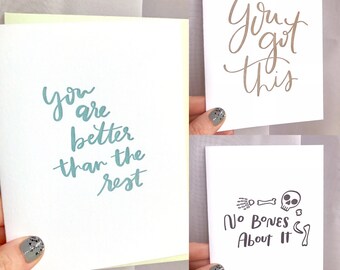 You
are
better
than the
rest
You
got
this
No Bones
About It